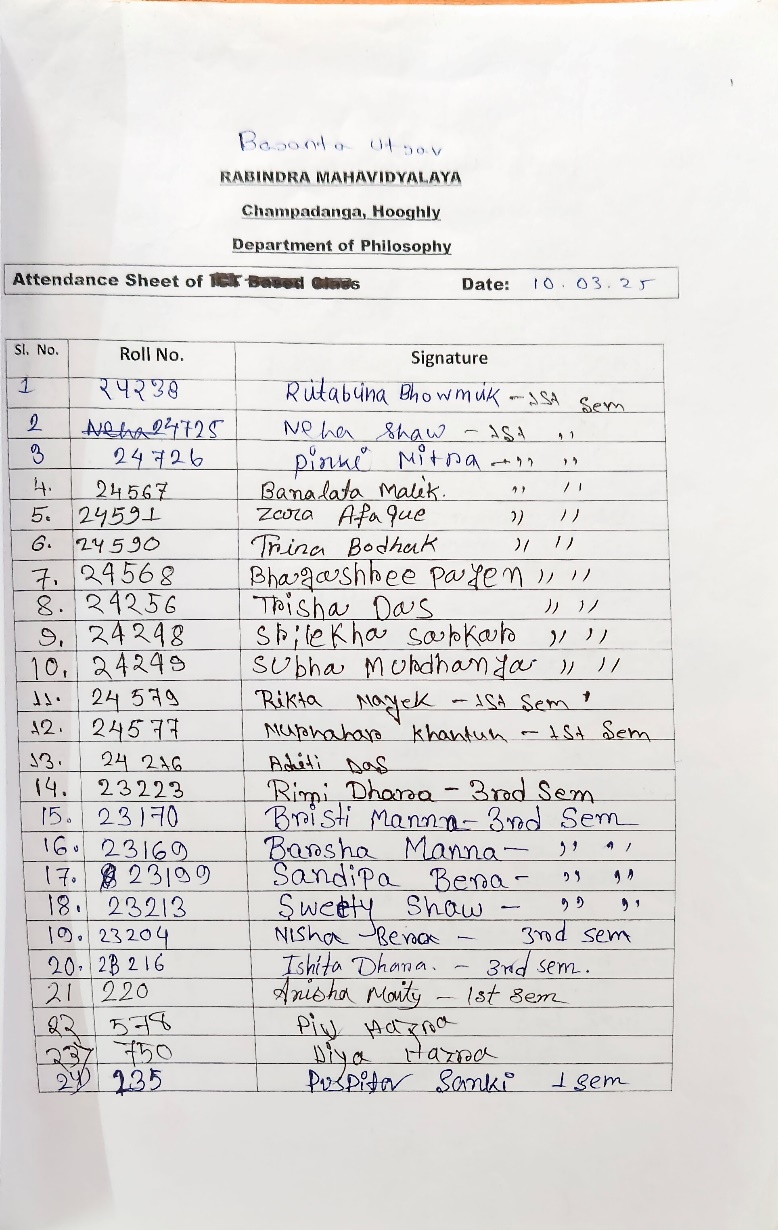 Basanta Utsav
RABINDRA MAHAVIDYALAYA
Champadanga, Hooghly
Department of Philosophy
Attendance Sheet of Date: 10.03.25
Sl. No. Roll No. Signature
1 24238 Ritabrina Bhowmik - 1st Sem
2 24725 Neha Shaw - 1st ,,
3 24726 Pinki Mitra - ,, ,,
4. 24567 Banalata Malik. ,, ,,
5. 24591 Zara Afaque ,, ,,
6. 24590 Trina Bodhak ,, ,,
7. 24568 Bhagashree Payen ,, ,,
8. 24256 Trisha Das ,, ,,
9. 24248 Srilekha Sarkar ,, ,,
10. 24249 Subha Murdhanya ,, ,,
11. 24 579 Rikta Mayek - 1st Sem
12. 24577 Khantun - 1st Sem
13. 24 216 Aditi Das
14. 23223 Rimi Dhara - 3rd Sem
15. 23170 Bristi Manna - 3rd Sem
16. 23169 Barsha Manna - ,, ,,
17. 23199 Sandipa Bera - ,, ,,
18. 23213 Sweety Shaw - ,, ,,
19. 23204 Nisha Bera - 3rd sem
20. 23 216 Ishita Dhara. - 3rd sem.
21 220 Anisha Maity - 1st sem
22 578 Piu Hazra
23 750 Diya Hazra
24 235 Puspita Sanki 1 sem